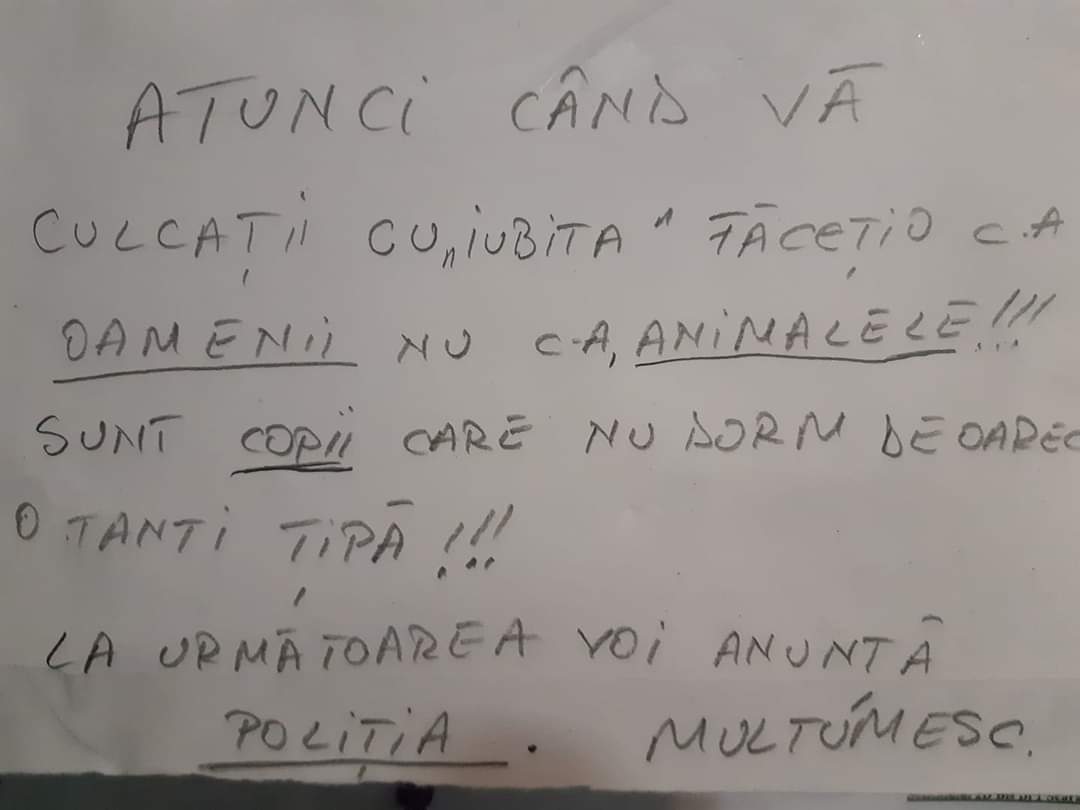 ATUNCI CÂND VĂ
CULCAȚII CU „IUBITA" FĂCEȚIO C.A
OAMENII NU C-A, ANIMALELE!!!
SUNT COPII CARE NU DORM DEOAREC
O TANTI ȚIPĂ!!!
LA URMĂTOAREA VOI ANUNTÂ
POLIȚIA. MULTUMESC.